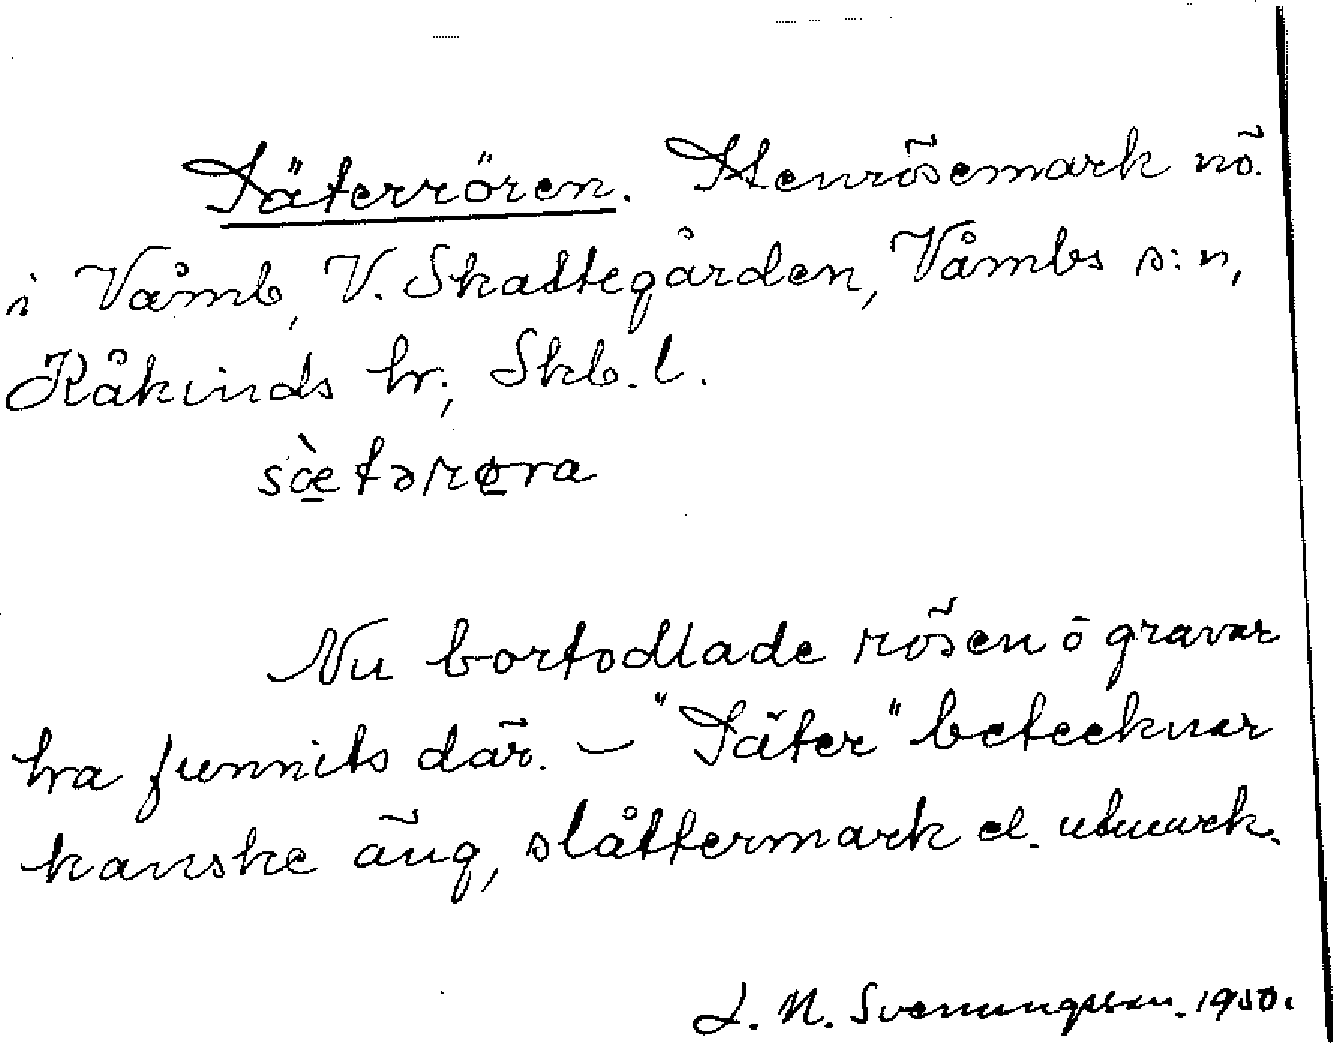 Säterrören. Stenrösemark nö.
i Våmb, V. Skattegården, Våmbs s:n,
Kåkinds hr., Skb. l.
sæ̀tərøra
Nu bortodlade rösen o gravar
ha funnits där. – "Säter" betecknar
kanske äng, slåttermark el. utmark.
J. N. Svenungsson. 1950.